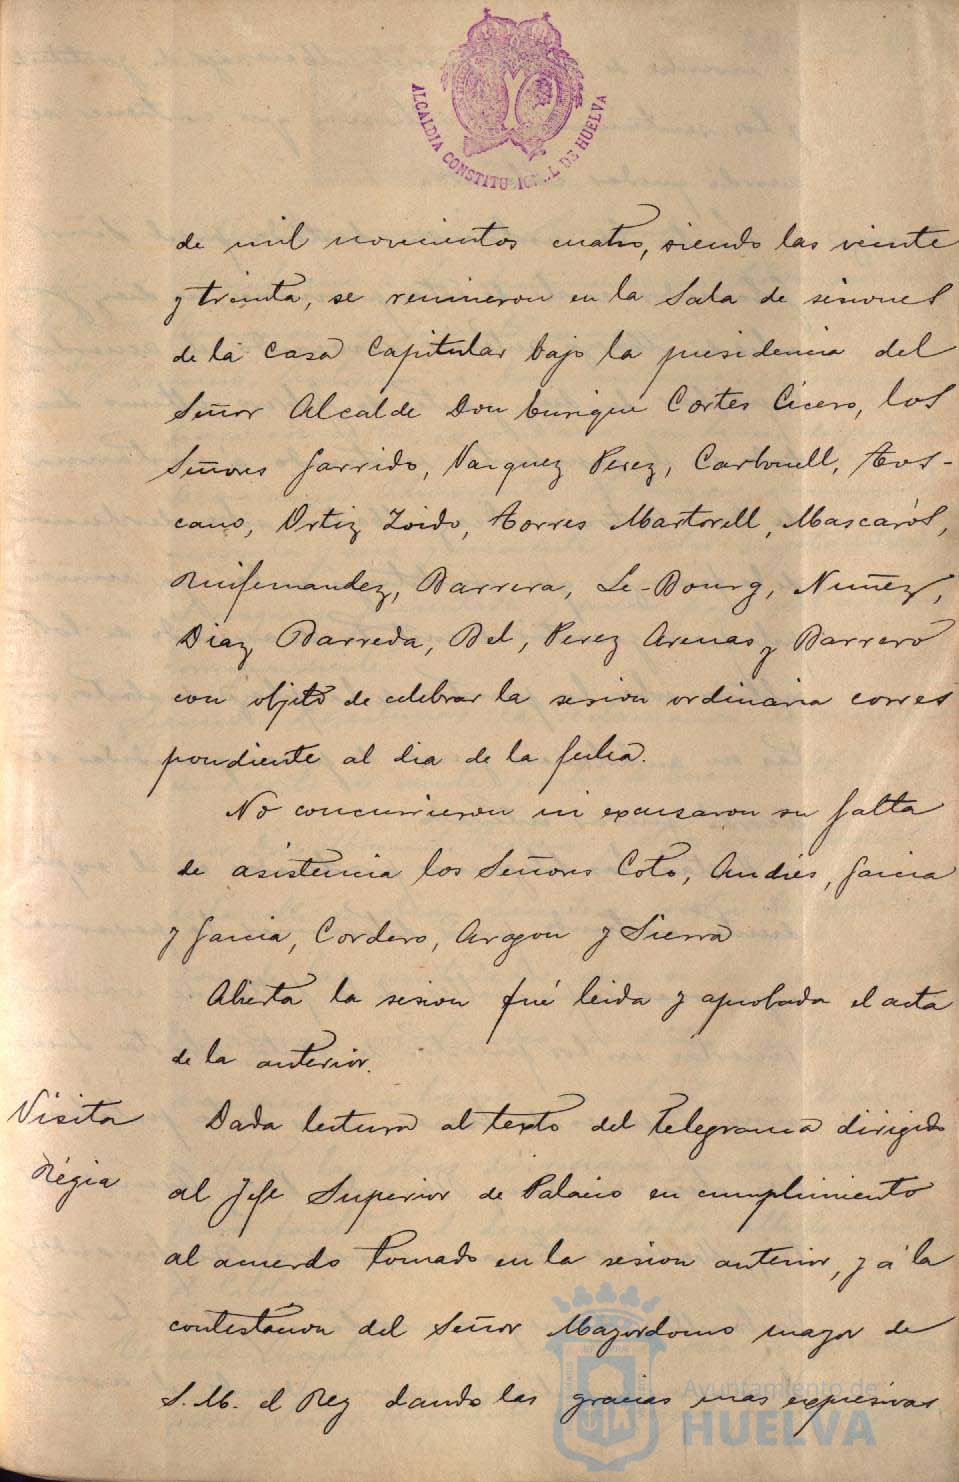 ALCALDIA CONSTITUCIONAL DE HUELVA
de mil novecientos cuatro, siendo las veinte
y treinta, se reunieron en la Sala de sesiones
de la Casa Capitular bajo la presidencia del
Señor Alcalde Don Enrique Cortes Cicero, los
Señores Garrido, Vazquez Perez, Carbonell, Tos-
cano, Ortiz Zoido, Torres Martorell, Mascarós,
Ruifernandez, Barrera, Le-Bourg, Nuñez,
Diaz Barreda, Bel, Perez Arenas y Barrero
con objeto de celebrar la sesion ordinaria corres
pondiente al dia de la fecha.
No concurrieron ni excusaron su falta
de asistencia los Señores Coto, Andrés, Garcia
y Garcia, Cordero, Aragon y Sierra
Abierta la sesion fué leida y aprobada el acta
de la anterior.
Visita
Régia
Dada lectura al texto del telegrama dirigido
al Jefe Superior de Palacio en cumplimiento
al acuerdo tomado en la sesion anterior, y á la
contestacion del Señor Mayordomo mayor de
S. M. el Rey dando las gracias mas expresivas
Ayuntamiento de
HUELVA